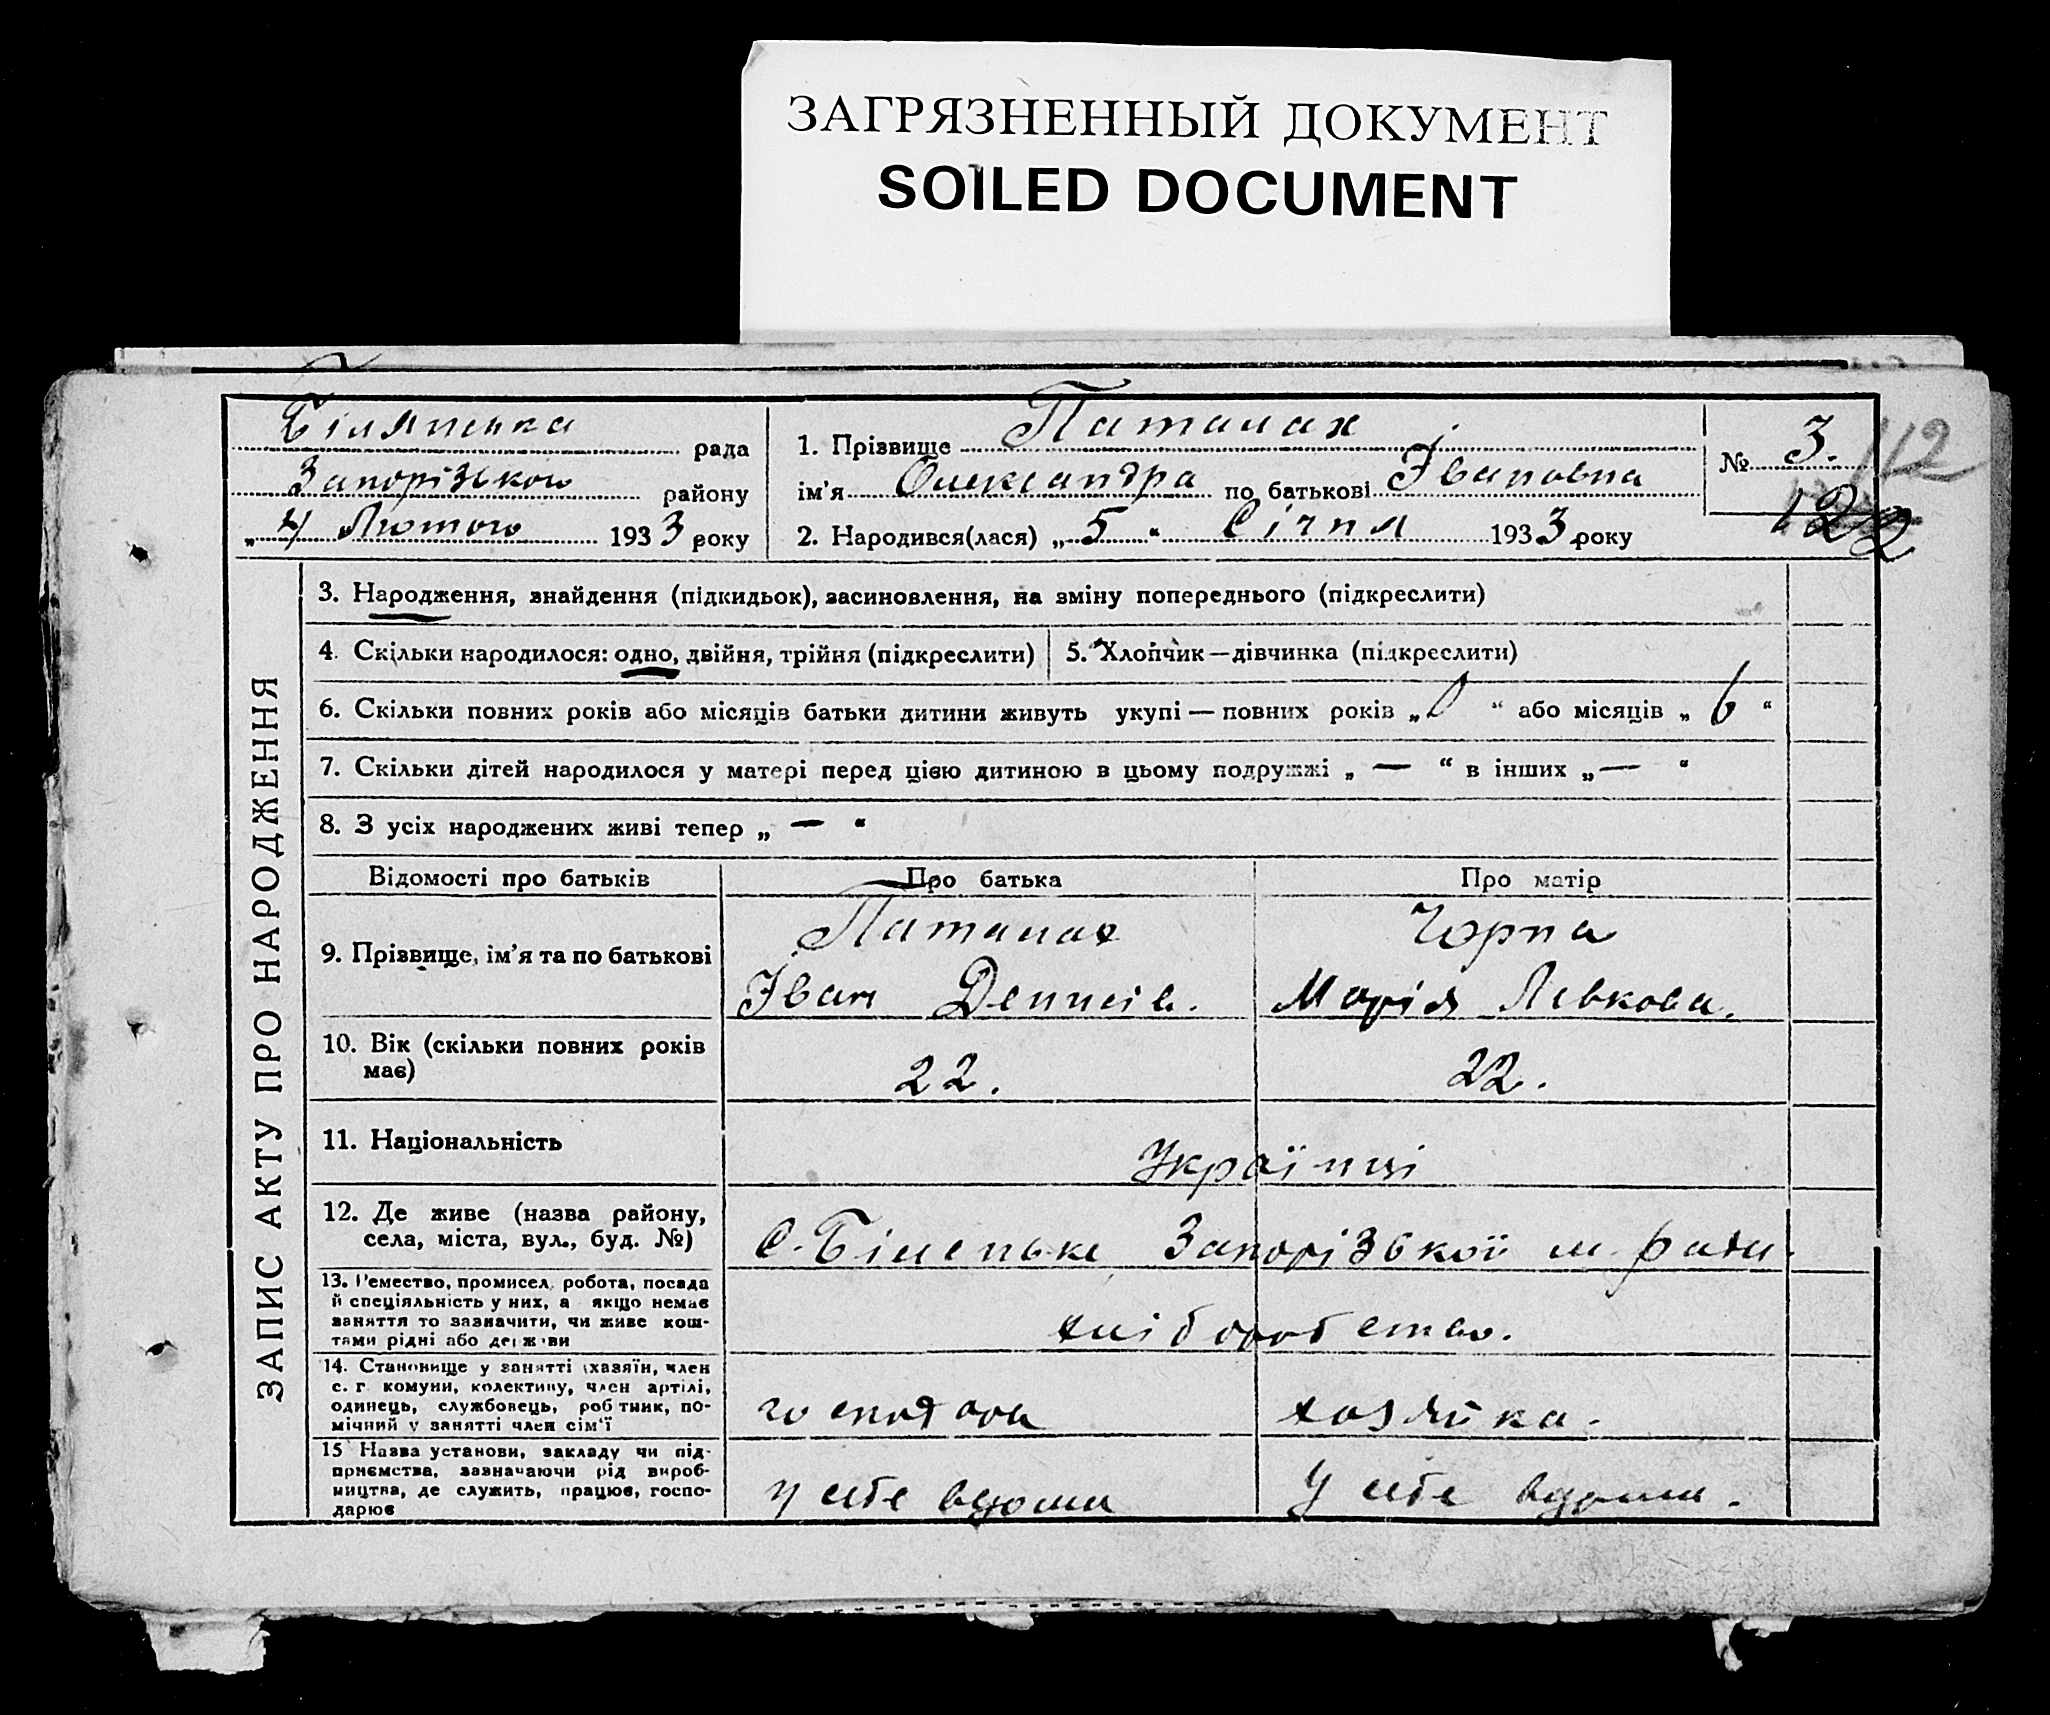 ЗАГРЯЗНЕННЫЙ ДОКУМЕНТ
SOILED DOCUMENT
Білянська рада
Запорізького району
„4 Лютого 1933 року
1. Прізвище Паталах
ім'я Олександра по батькові Івановна
2. Народився(лася) „5“ Січня 1933 року
№ 3.
112
122
ЗАПИС АКТУ ПРО НАРОДЖЕННЯ
3. Народження, знайдення (підкидьок), засиновлення, на зміну попереднього (підкреслити)
4. Скільки народилося: одно, двійня, трійня (підкреслити)
5. Хлопчик—дівчинка (підкреслити)
6. Скільки повних років або місяців батьки дитини живуть укупі — повних років „0“ або місяців „6“
7. Скільки дітей народилося у матері перед цією дитиною в цьому подружжі „—“ в інших „—“
8. З усіх народжених живі тепер „—“
Відомості про батьків
Про батька
Про матір
9. Прізвище, ім'я та по батькові
Паталах
Іван Денисів.
Чорна
Марія Левкова.
10. Вік (скільки повних років
має)
22.
22.
11. Національність
Українці
12. Де живе (назва району,
села, міста, вул., буд. №)
С. Біленьке Запорізької м. ради.
13. Ремество, промисел, робота, посада
й спеціяльність у них, а якщо немає
заняття то зазначити, чи живе кош-
тами рідні або держави
хліборобство.
14. Становище у занятті (хазяїн, член
с. г. комуни, колективу, член артілі,
одинець, службовець, робітник, по-
мічний у занятті член сім'ї
господар
хазяйка.
15 Назва установи, закладу чи під-
приємства, зазначаючи рід вироб-
ництва, де служить, працює, госпо-
дарює
у себе вдома
У себе вдома.